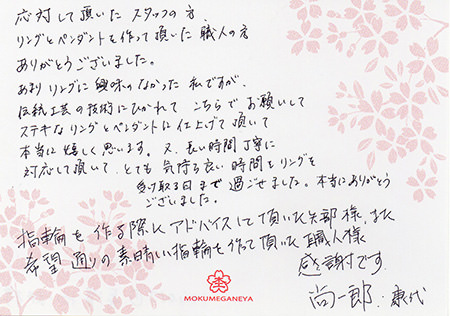 応対して頂いた スタッフの方、
リングとペンダントを作って頂いた 職人の方
ありがとうございました。
あまりリングに興味のなかった 私ですが、
伝統工芸の技術にひかれて こちらで お願いして
ステキなリングとペンダントに仕上げて 頂いて
本当に嬉しく思います。又、長い時間 丁寧に
対応して頂いて、とても 気持ち良い時間をリングを
受け取る日まで 過ごせました。本当にありがとう
ございました。
指輪を作る際にアドバイスして頂いた矢部様、また
希望通りの素晴しい指輪を作って頂いた職人様
感謝です。
尚一郎・
MOKUMEGANEYA